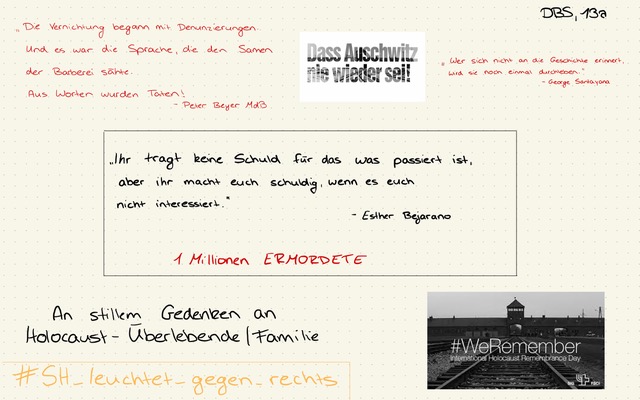 DBS, 13a
„Die Vernichtung begann mit Denunzierungen.
Und es war die Sprache, die den Samen
der Barberei sähte.
Aus Worten wurden Taten!
- Peter Beyer MdB
Dass Auschwitz
nie wieder sei!
„Wer sich nicht an die Geschichte erinnert,
wird sie noch einmal durchleben."
- George Santayana
„Ihr tragt keine Schuld für das was passiert ist,
aber ihr macht euch schuldig, wenn es euch
nicht interessiert."
- Esther Bejarano
1 Millionen ERMORDETE
An stillem Gedenken an
Holocaust-Überlebende/Familie
#SH_leuchtet_gegen_rechts
#WeRemember
International Holocaust Remembrance Day